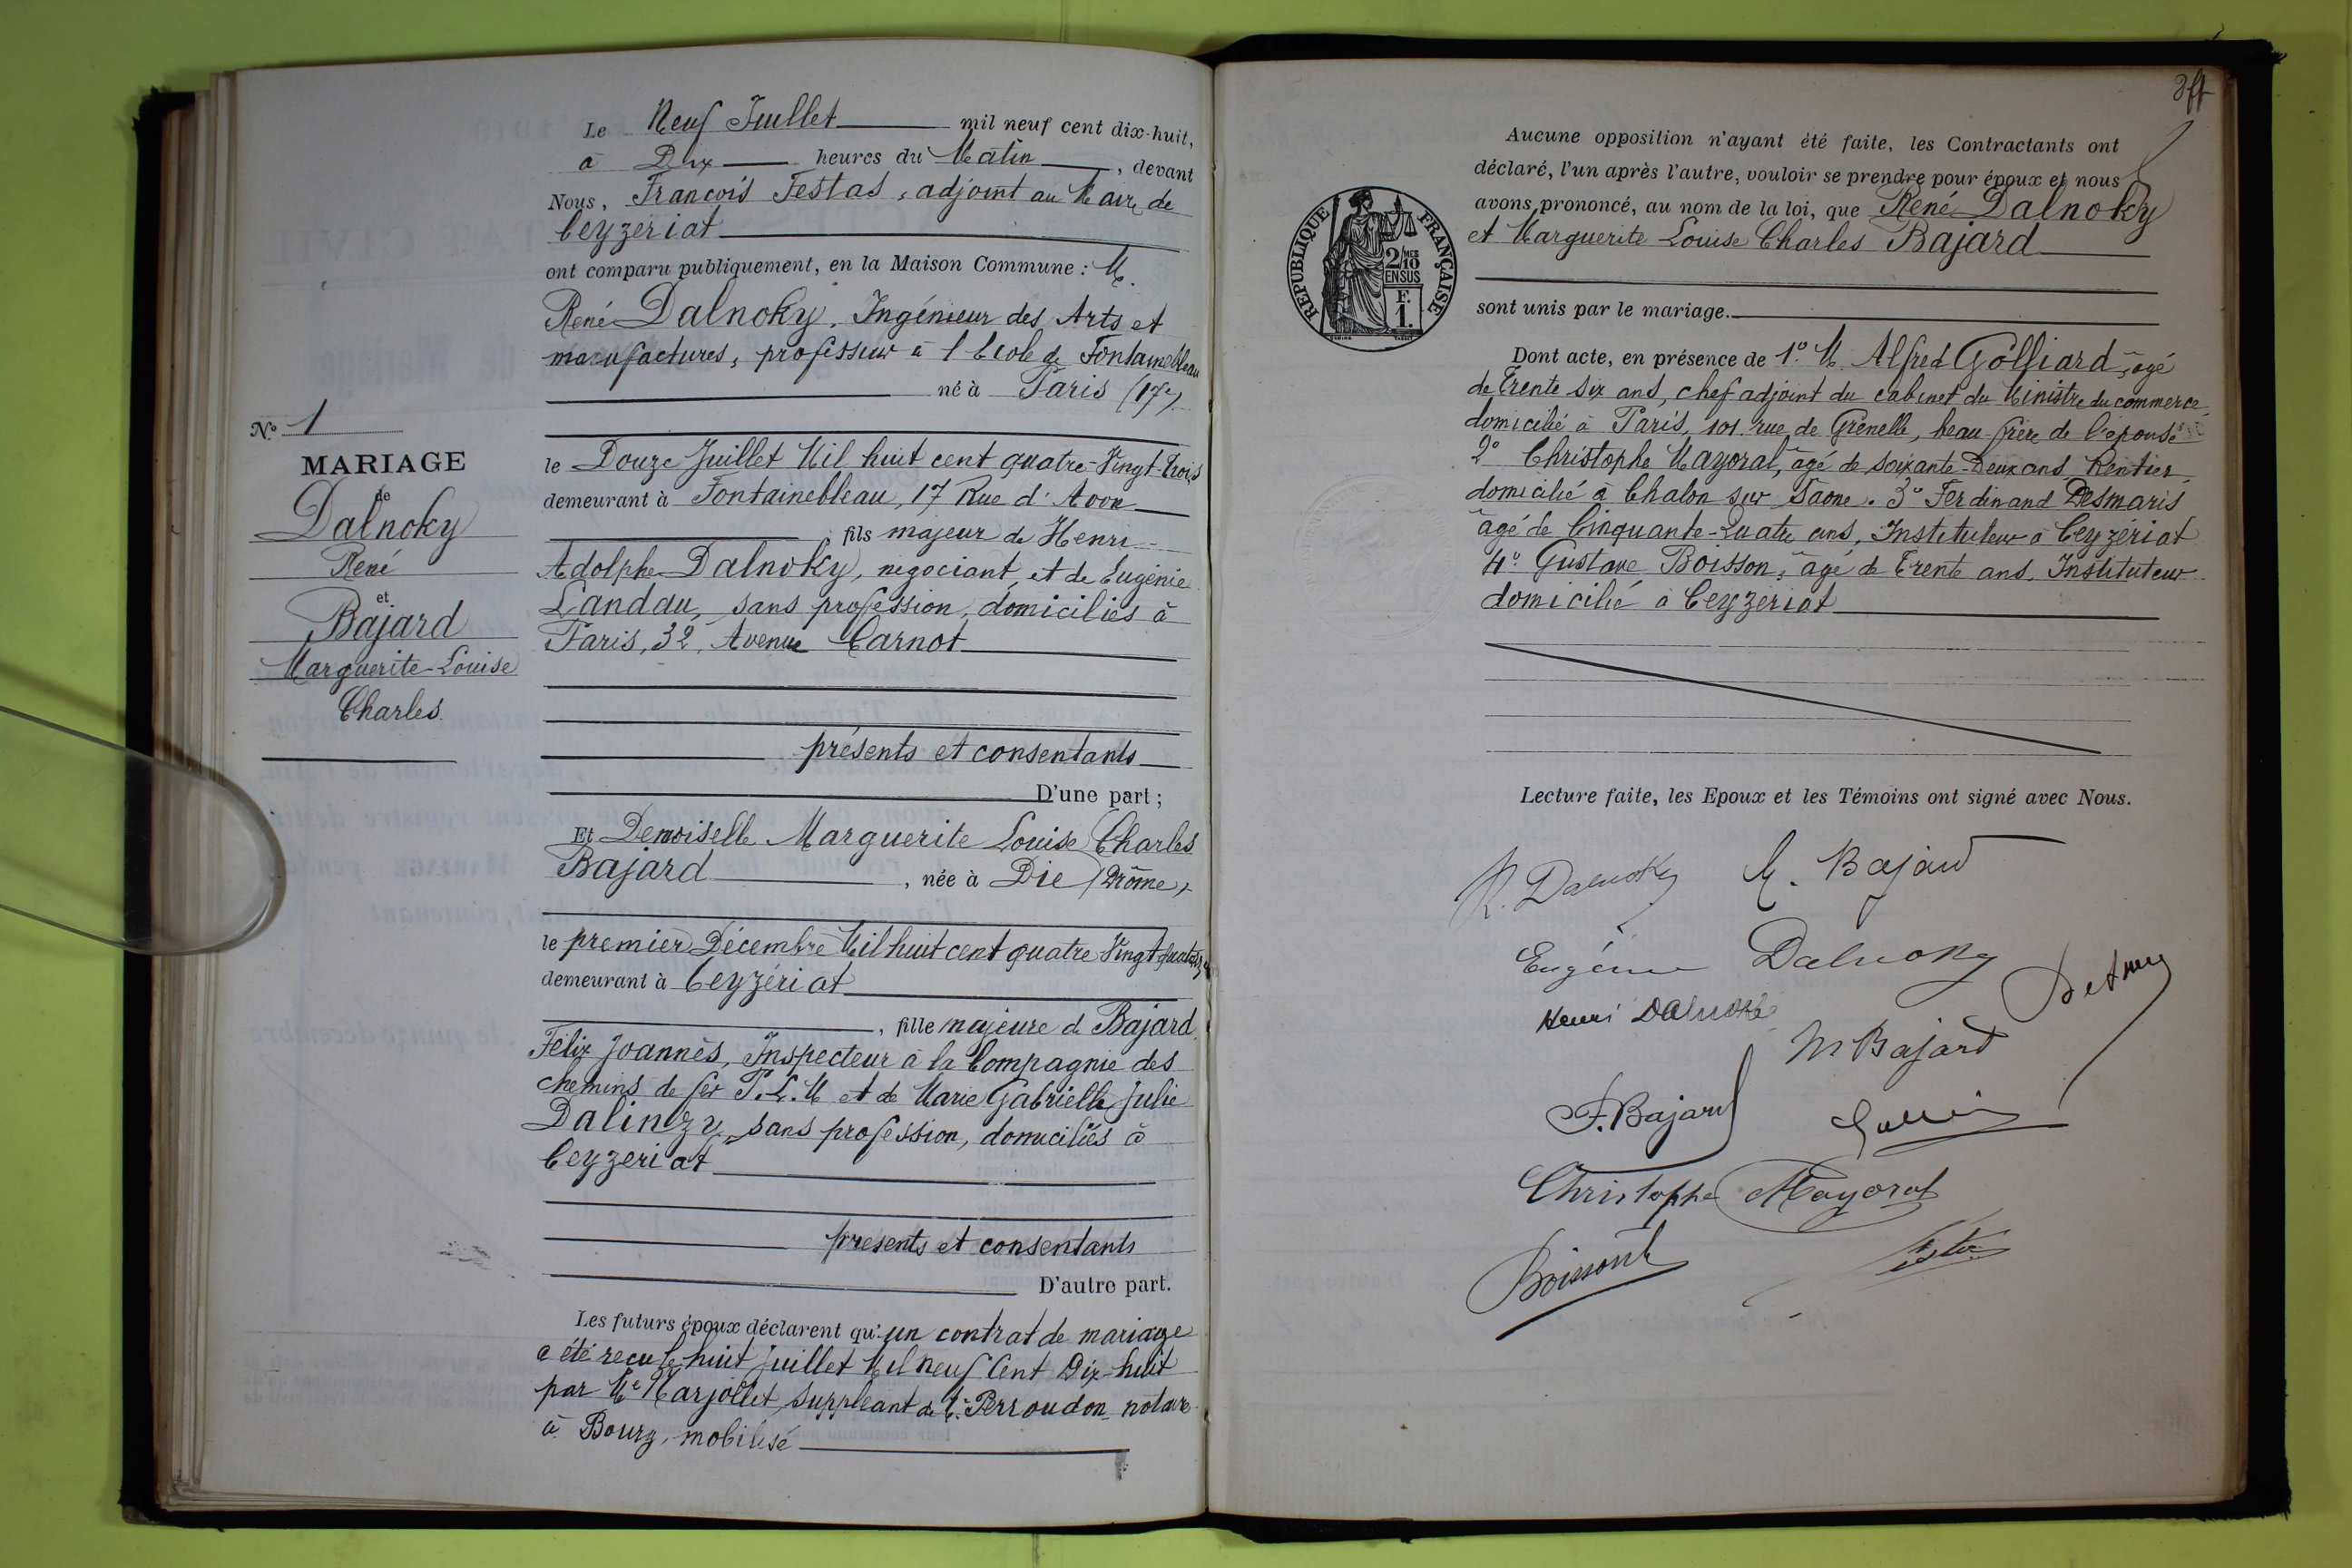 Le Neuf Juillet mil neuf cent dix-huit,
à Dix heures du Matin, devant
Nous, François Festas, adjoint au Maire de
Ceyzériat
ont comparu publiquement, en la Maison Commune : M.
René Dalnoky, Ingénieur des Arts et
manufactures, professeur à l'Ecole de Fontainebleau
né à Paris (17e)
le Douze Juillet Mil huit cent quatre-Vingt-Trois
demeurant à Fontainebleau, 17 Rue d'Avon
fils majeur de Henri
Adolphe Dalnoky, négociant, et de Eugénie
Landau, sans profession, domiciliés à
Paris, 32, Avenue Carnot
présents et consentants
D'une part ;
Et Demoiselle Marguerite Louise Charles
Bajard, née à Die (Drôme)
le premier Décembre Mil huit cent quatre Vingt quatorze
demeurant à Ceyzériat
, fille majeure de Bajard
Félix Joannès, Inspecteur à la Compagnie des
chemins de fer P.L.M et de Marie Gabrielle Julie
sans profession, domiciliés à
Ceyzeriat
présents et consentants
D'autre part.
Les futurs époux déclarent qu'un contrat de mariage
a été reçu le huit Juillet Mil neuf Cent Dix-huit
par Me Marjollet, suppléant de Me Perroudon, notaire
à Bourg, mobilisé
N.º 1
MARIAGE
de
Dalnoky
René
et
Bajard
Marguerite-Louise
Charles
Aucune opposition n'ayant été faite, les Contractants ont
déclaré, l'un après l'autre, vouloir se prendre pour époux et nous
avons prononcé, au nom de la loi, que René Dalnoky
et Marguerite Louise Charles Bajard
sont unis par le mariage.
Dont acte, en présence de 1º M. Alfred Golliard, âgé
de Trente six ans, chef adjoint du cabinet du Ministre du commerce
domicilié à Paris, 101 rue de Grenelle, beau frère de l'épouse
2º Christophe Mayoral, âgé de soixante-Deux ans, Rentier,
domicilié à Chalon sur Saône. 3º Ferdinand Desmaris
âgé de Cinquante-Quatre ans, Instituteur à Ceyzériat
4º Gustave Boisson, âgé de Trente ans, Instituteur
domicilié à Ceyzeriat
REPUBLIQUE FRANÇAISE
2/10 MES
EN SUS
F.
1.
Lecture faite, les Epoux et les Témoins ont signé avec Nous.
R. Dalnoky M. Bajard
Eugénie Dalnoky
Henri Dalnoky
M Bajard
F. Bajard
Christophe Mayoral
Boisson